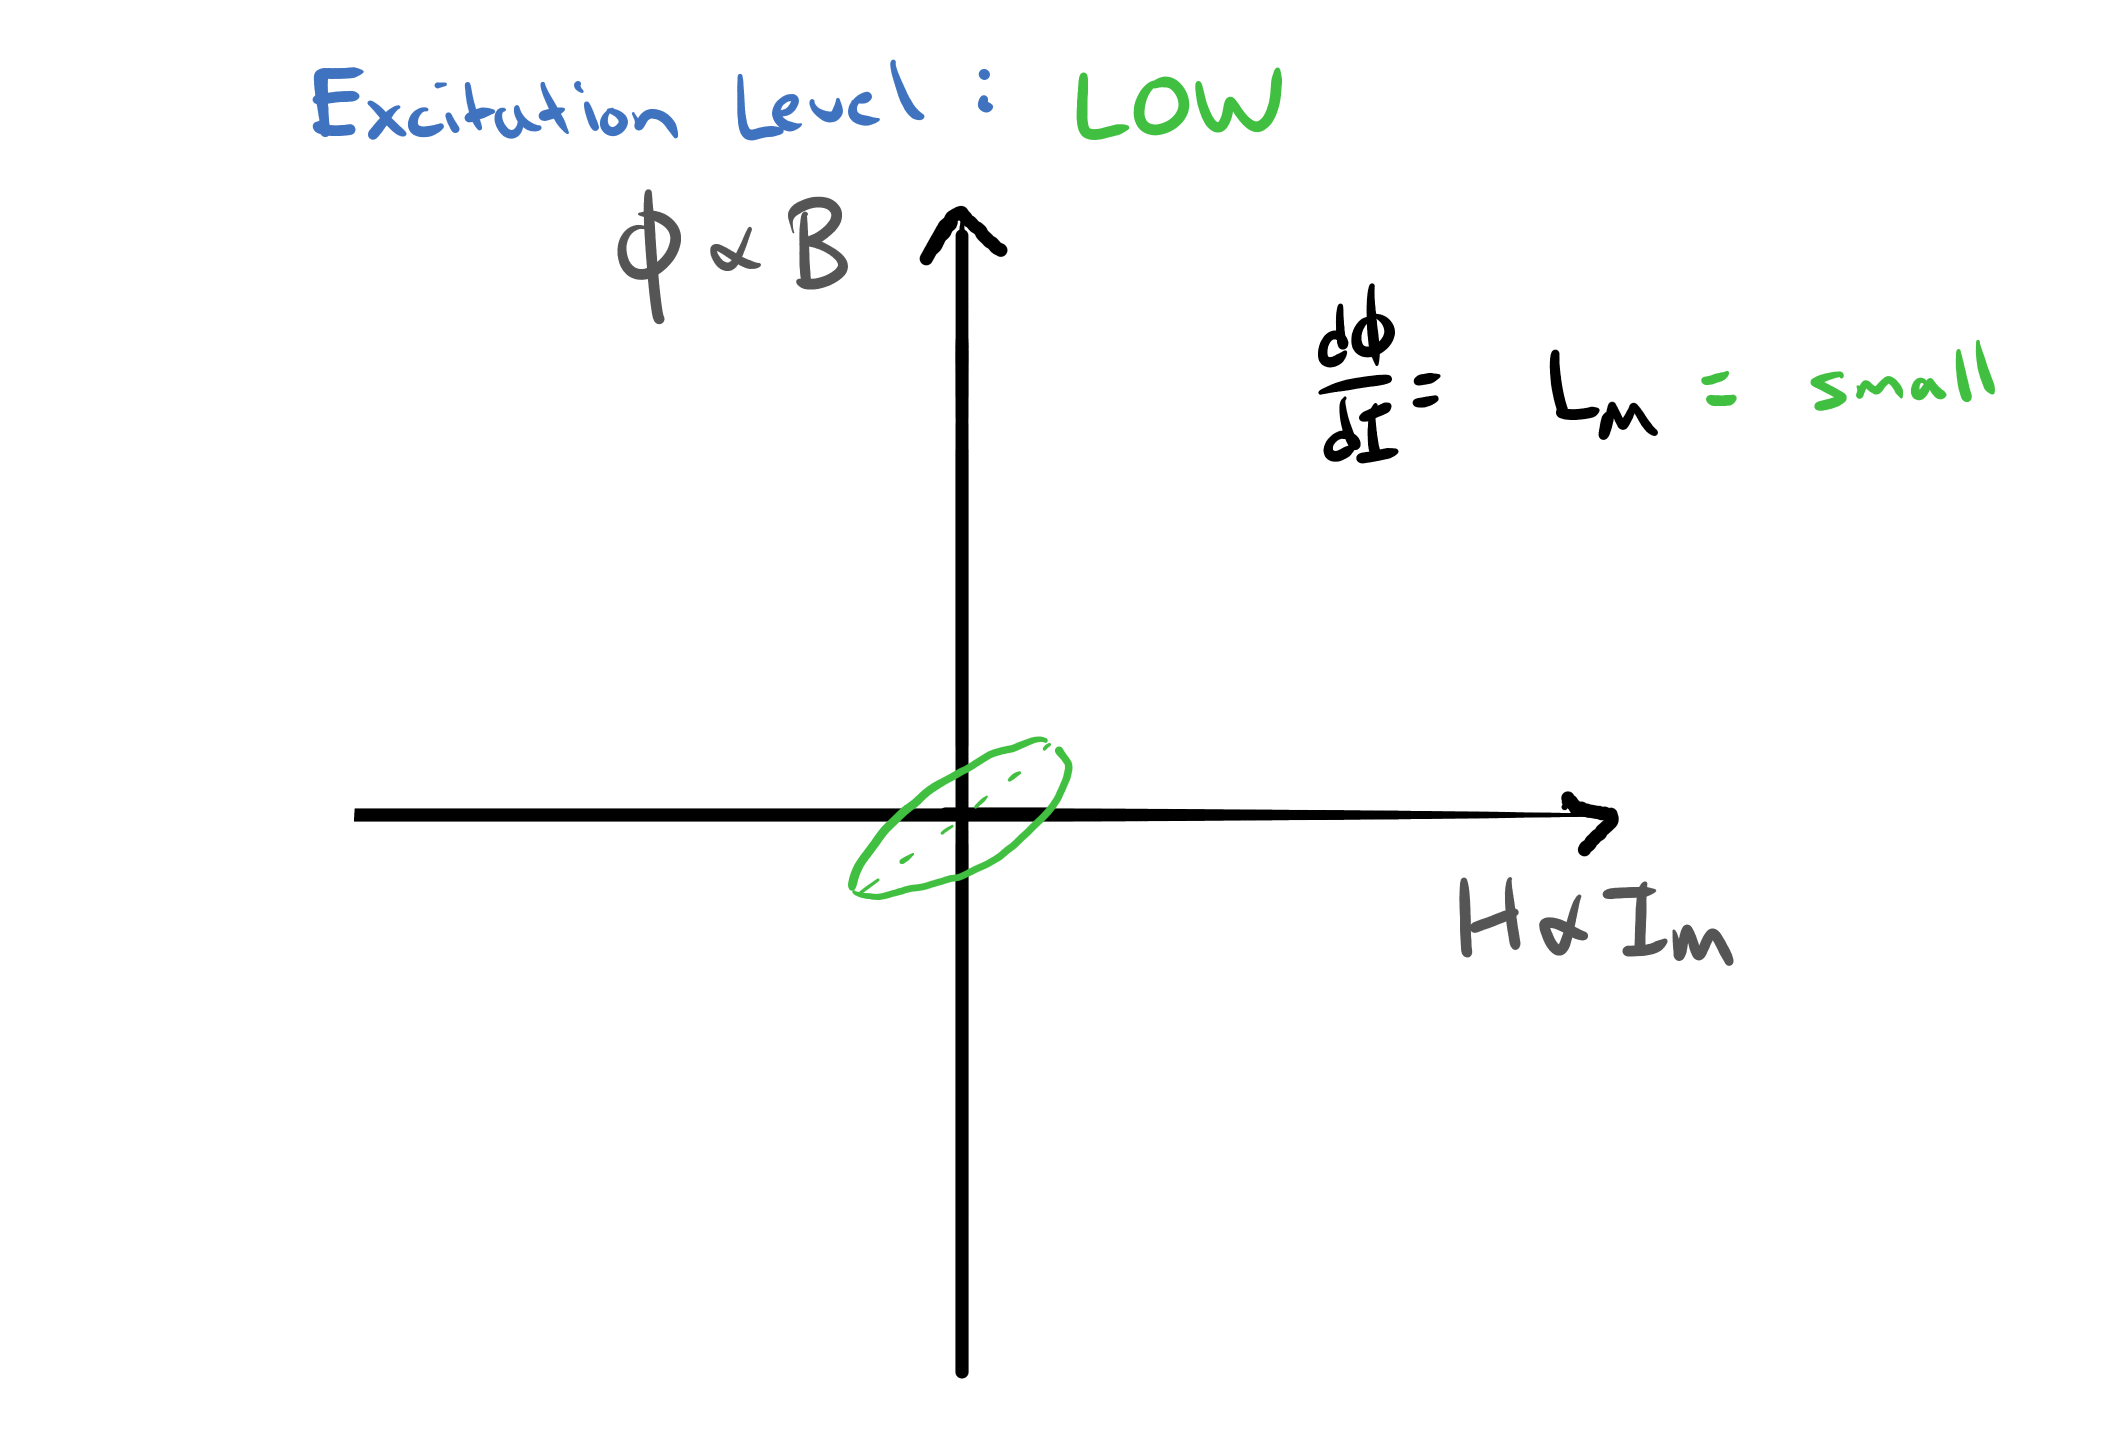 Excitation Level : LOW
ϕ ∝ B
dϕ/dI = Lm = small
H ∝ Im